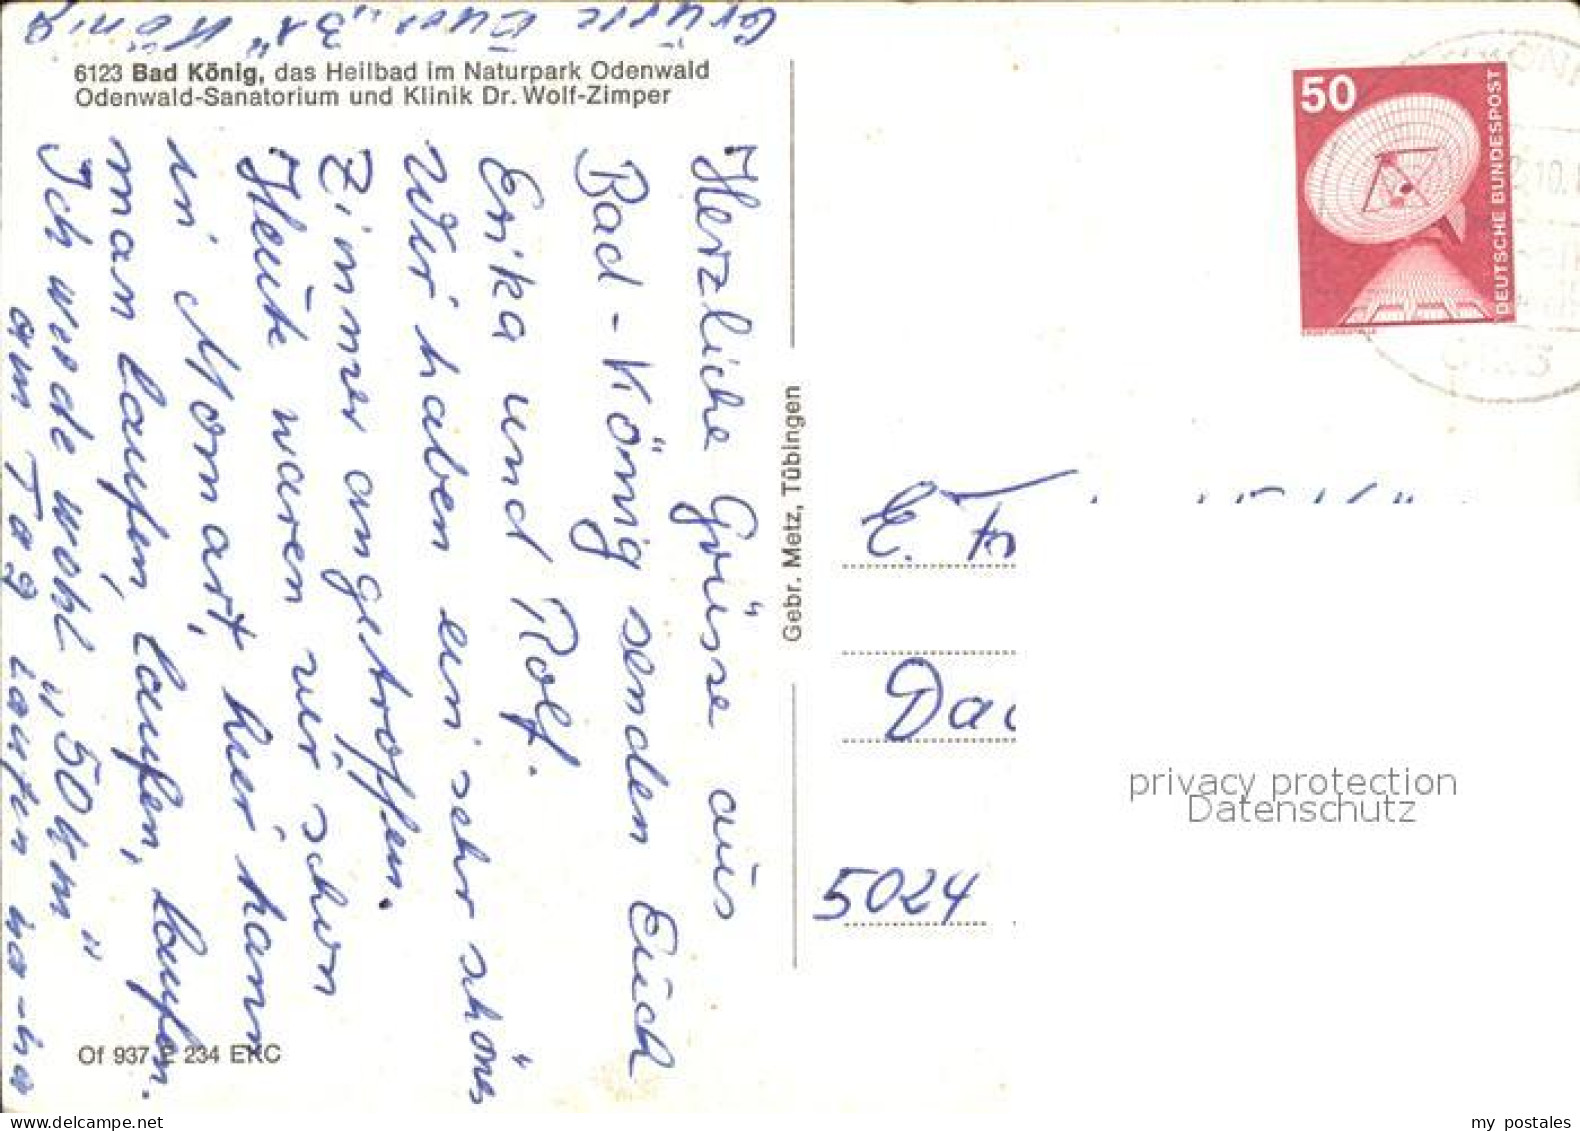 Grüsse Euer "B1" König
6123 Bad König, das Heilbad im Naturpark Odenwald
Odenwald-Sanatorium und Klinik Dr. Wolf-Zimper
Herzliche Grüsse aus
Bad-König senden Euch
Erika und Rolf.
Wir haben ein sehr schönes
Zimmer angetroffen.
Heute waren wir schon
in Momart, hier kann
man laufen, laufen, laufen, laufen.
Ich wurde wohl "50 km"
am Tag laufen ha-ha
Of 937 E 234 EKC
Gebr. Metz, Tübingen
50
DEUTSCHE BUNDESPOST
ERDEFUNKSTELLE
2.10.
6123
E.
5024
privacy protection
Datenschutz
www.delcampe.net
my_postales